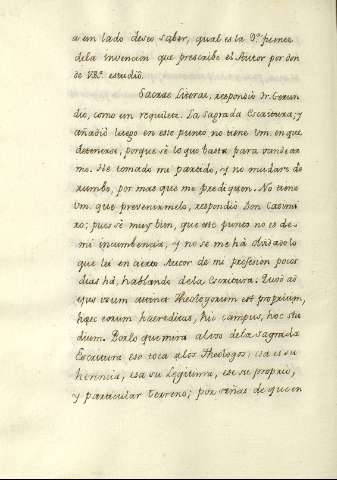 a un lado deseo saber, qual es la 9.ª fuente
dela invencion que prescribe el Autor por don
de VR.ª estudió.
Sacrae Literae, respondió Fr. Gerun
dio, como un reguilete. La sagrada Escritura; y
añadió luego en este punto no tiene Vm. en que
detenerse, porque sè lo que basta para vandear
me. He tomado mi partido, y no mudarè de
rumbo, por mas que me prediquen. No tiene
Vm. que prevenirmelo, respondió Don Casimi
ro; pues sè muy bien, que este punto no es de
mi incumbencia, y no se me há olvidado lo
que lei en cierto Autor de mi profesion pocos
dias há, hablando dela Escritura. Quod ad
ejus usum attinet Theologorum est proprium,
haec eorum haereditas, hic campus, hoc stu
dium. Porlo que mira al uso dela Sagrada
Escritura eso toca alos Theologos; esa es su
herencia, esa su Legitima, ese su proprio,
y particular terreno; por señas de que en